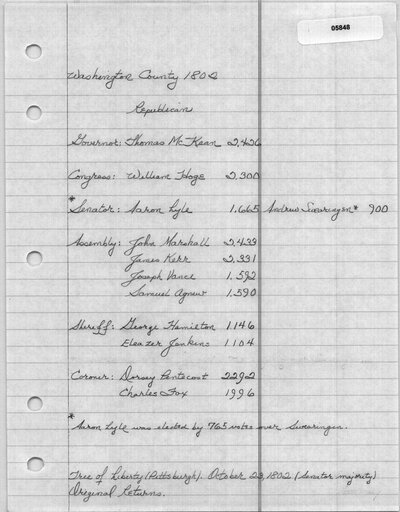 05848
Washington County 1802
Republican
Governor: Thomas McKean 2,426
Congress: William Hoge 2,300
*Senator: Aaron Lyle 1,665 Andrew Swearingen* 900
Assembly: John Marshall 2,433
James Kerr 2,331
Joseph Vance 1,592
Samuel Agnew 1,590
Sheriff: George Hamilton 1146
Eleazer Jenkins 1104
Coroner: Dorsey Pentecost 2292
Charles Fox 1996
*Aaron Lyle was elected by 765 votes over Swearingen.
Tree of Liberty (Pittsburgh). October 23, 1802 (Senator majority)
Original Returns.